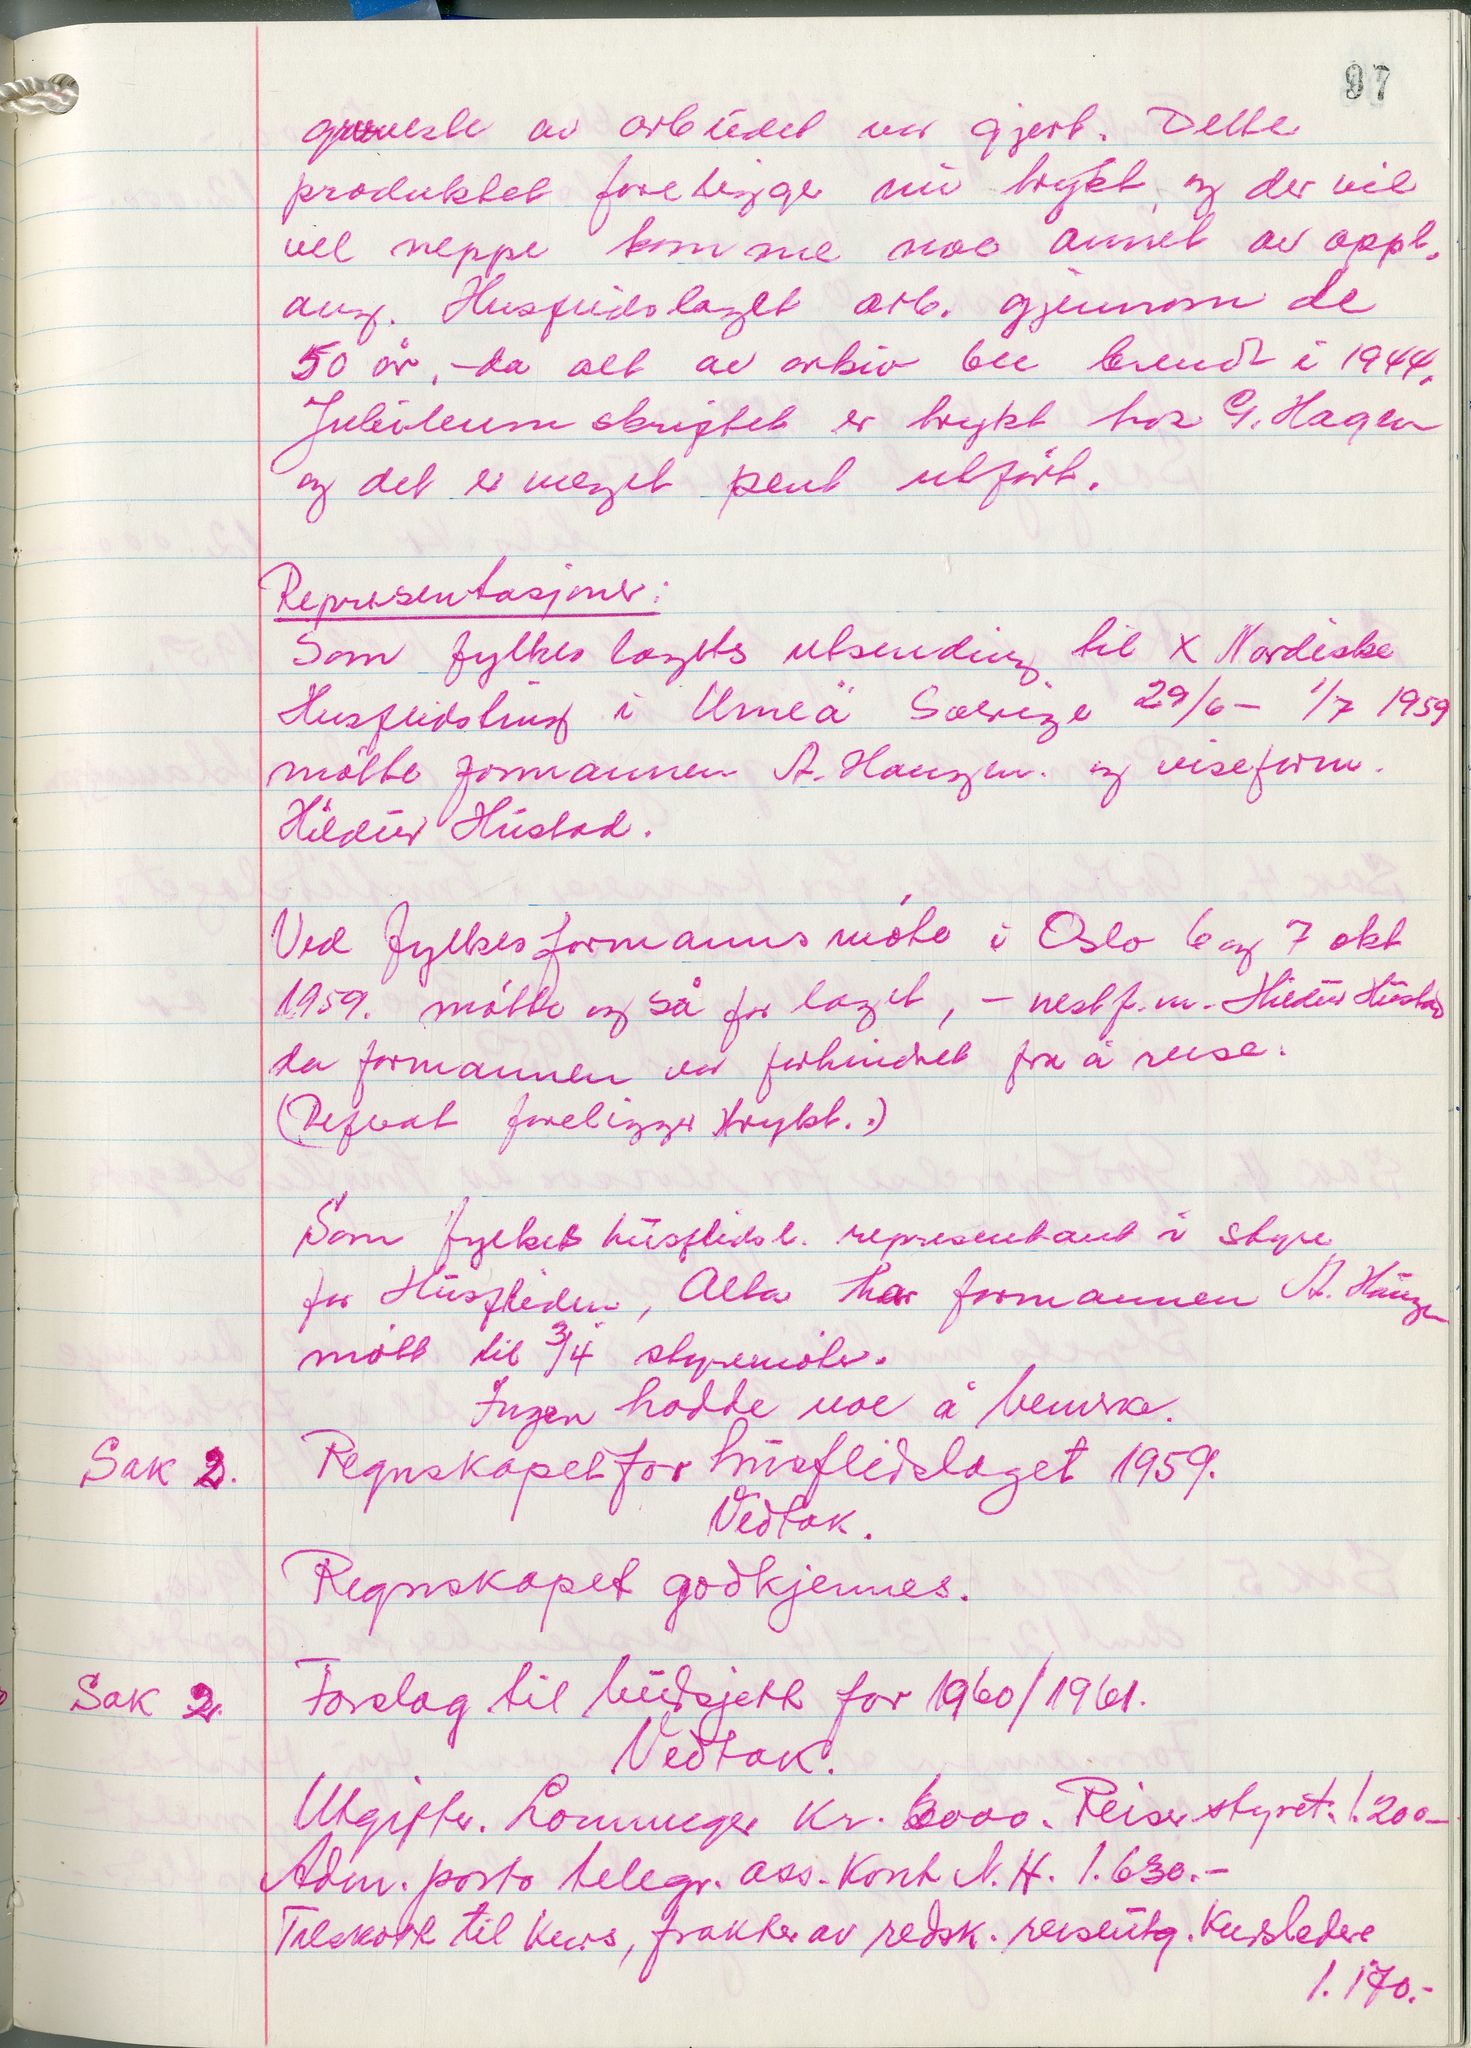 97
av arbeidet var gjort. Dette
produktet foreligge nu trykt, og der vil
vel neppe komme noe annet av oppl.
ang. Husflidslaget arb. gjennom de
50 år, - da alt av arkiv ble brendt i 1944.
Jubileumskriftet er trykt hos G. Hagen
og det er meget pent utført.
Representasjoner:
Som fylkeslagets utsending til X Nordiske
Husflidsting i Umeå Sverige 29/6 - 1/7 1959
møtte formannen A. Haugen. og viseform.
Hildur Hustad.
Ved fylkesformannsmøte i Oslo 6 og 7 okt
1959. møtte og så for laget, - nestf.m. Hildur Hustad
da formannen var forhindret fra å reise.
(Referat foreligger trykt..)
Som fylkets husflidsl. representant i styre
for Husfliden, Alta har formannen A. Haugen
møtt til 3/4 styremøter.
Ingen hadde noe å bemerke.
Sak 2. Regnskapet for husflidslaget 1959.
Vedtak.
Regnskapet godkjennes.
Sak 2. Forslag til budsjett for 1960/1961.
Vedtak.
Utgifter. Lønninger Kr. 6000. Reiser styret. 1.200-
Adm. porto telegr. ass. Kont N.H. 1.630.-
Tilskott til Kurs, frakter av redsk. reiseutg. Kursledere
1.170.-